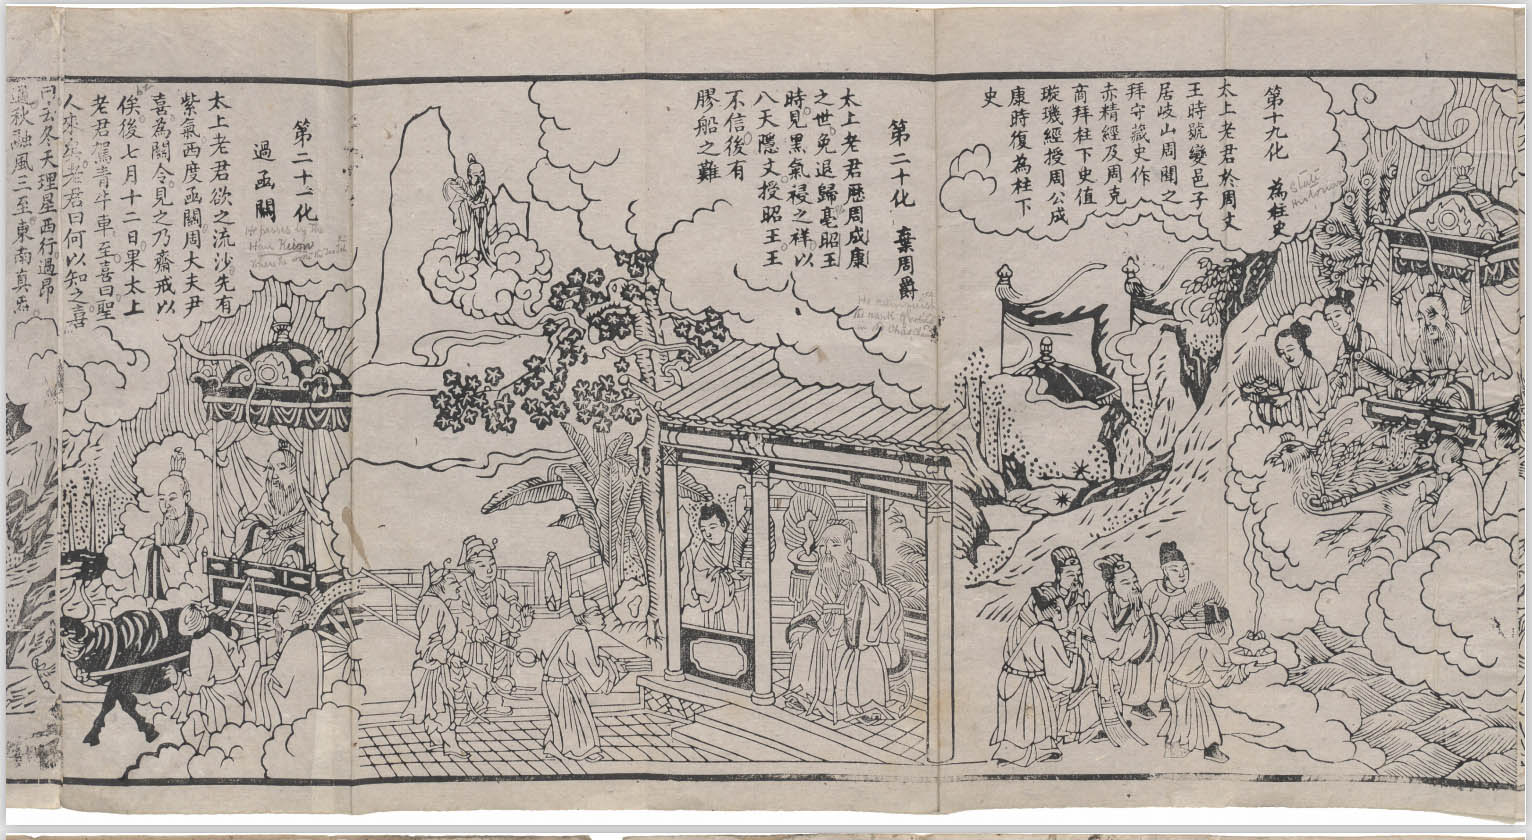 第十九化 為柱史
State
Historian
太上老君於周文
王時號變邑子
居岐山周聞之
拜守藏史作
赤精經及周克
商拜柱下史值
璇璣經授周公成
康時復為柱下
史
第二十化 棄周爵
He relinquishes
the rank of
in the
太上老君歷周成康
之世免退歸亳昭王
時見黑氣祲之祥以
八天隱文授昭王王
不信後有
膠船之難
第二十一化
過函關
He passes by the
Han
where he
太上老君欲之流沙先有
紫氣西度函關周大夫尹
喜為關令見之乃齋戒以
俟後七月十二日果太上
老君駕青牛車至喜曰聖
人來矣老君曰何以知之喜
曰去冬天理星西行過昴
過秋融風三至東南真炁